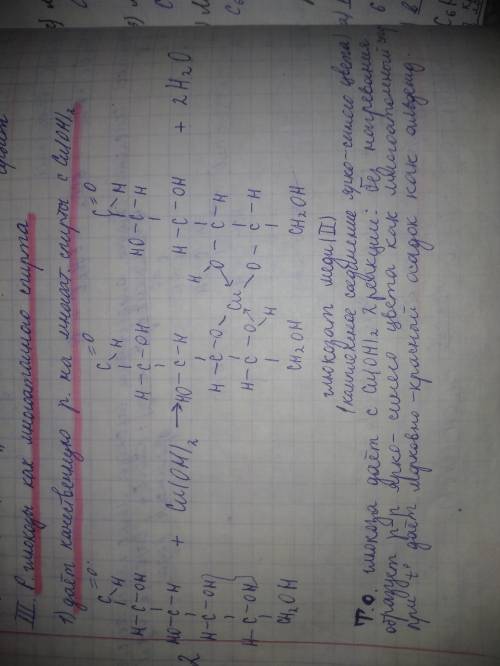 III. Р глюкозы как многоатомного спирта
1) даёт качественную р. на многоат. спирты с Cu(OH)2
C=O C=O C=O
H H H
H-C-OH H-C-OH HO-C-H
2 HO-C-H + Cu(OH)2 → HO-C-H H-C-OH + 2H2O
H
H-C-OH H-C-O O-C-H
Cu
H-C-OH H-C-O O-C-H
H
CH2OH CH2OH CH2OH
глюкозат меди (II)
(комплексное соединение ярко-синего цвета)
Т.О. глюкоза даёт с Cu(OH)2 2 реакции: без нагревания
образует р-р ярко-синего цвета как многоатомный
при t° даёт морковно-красный осадок как альдегид.